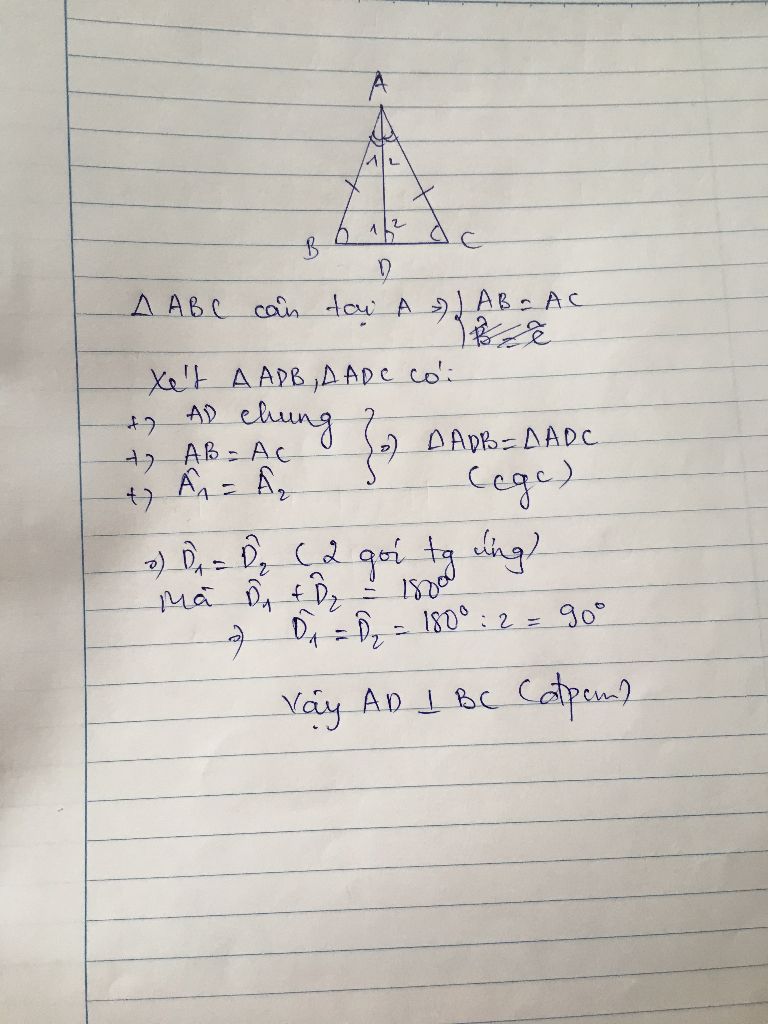 A
1 2
1 2
B C
D
Δ ABC cân tại A => { AB = AC
B̂ = Ĉ
Xét Δ ADB, Δ ADC có:
+) AD chung
+) AB = AC } => ΔADB = ΔADC
+) Â₁ = Â₂ (cgc)
=> D̂₁ = D̂₂ (2 gói tg ứng)
Mà D̂₁ + D̂₂ = 180°
=> D̂₁ = D̂₂ = 180° : 2 = 90°
Vậy AD ⊥ BC (đpcm)